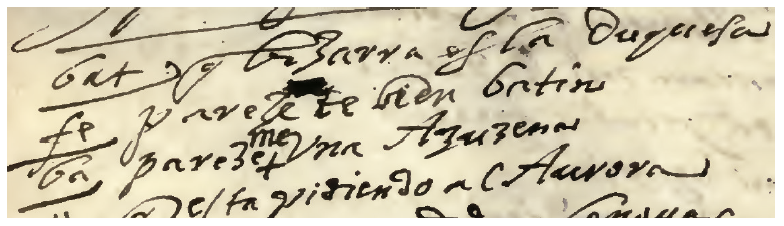 bat q bizarra es la Duquesa
fe pareze te bien batin
ba pareze me vna Azuzena
q esta pidiendo al Aurora